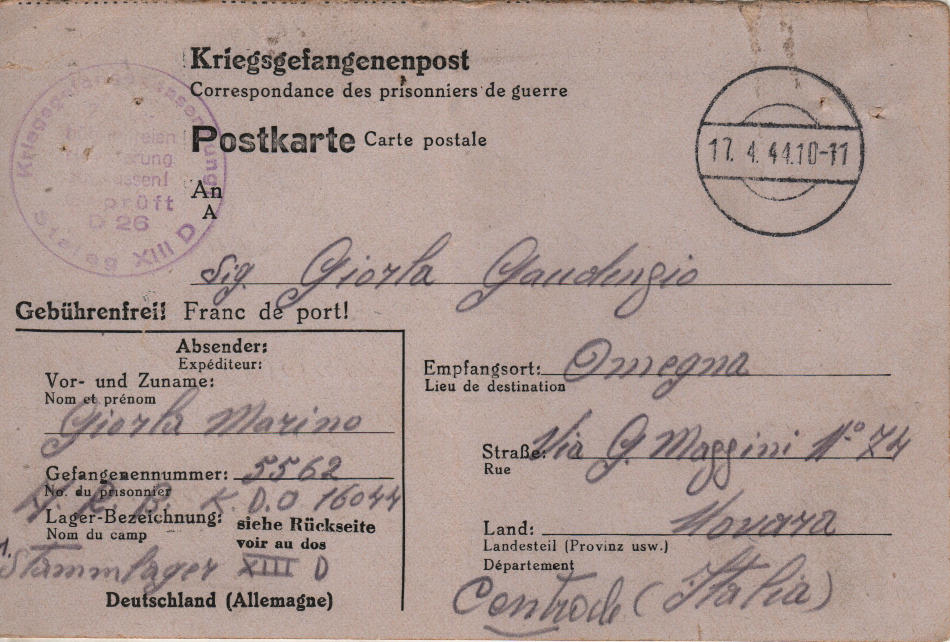 Kriegsgefangenenpost
Correspondance des prisonniers de guerre
Postkarte Carte postale
An
A
17. 4. 44.10-11
geprüft
D 26
Stalag XIII D
Sig. Giorla Gaudenzio
Gebührenfrei! Franc de port!
Absender:
Expéditeur:
Vor- und Zuname:
Nom et prénom
Giorla Marino
Gefangenennummer: 5562
No. du prisonnier
K.D.O 16044
Lager-Bezeichnung: siehe Rückseite
Nom du camp voir au dos
Stammlager XIII D
Deutschland (Allemagne)
Empfangsort: Omegna
Lieu de destination
Straße: Via G. Maggini N.º 74
Rue
Land: Novara
Landesteil (Provinz usw.)
Département
(Italia)